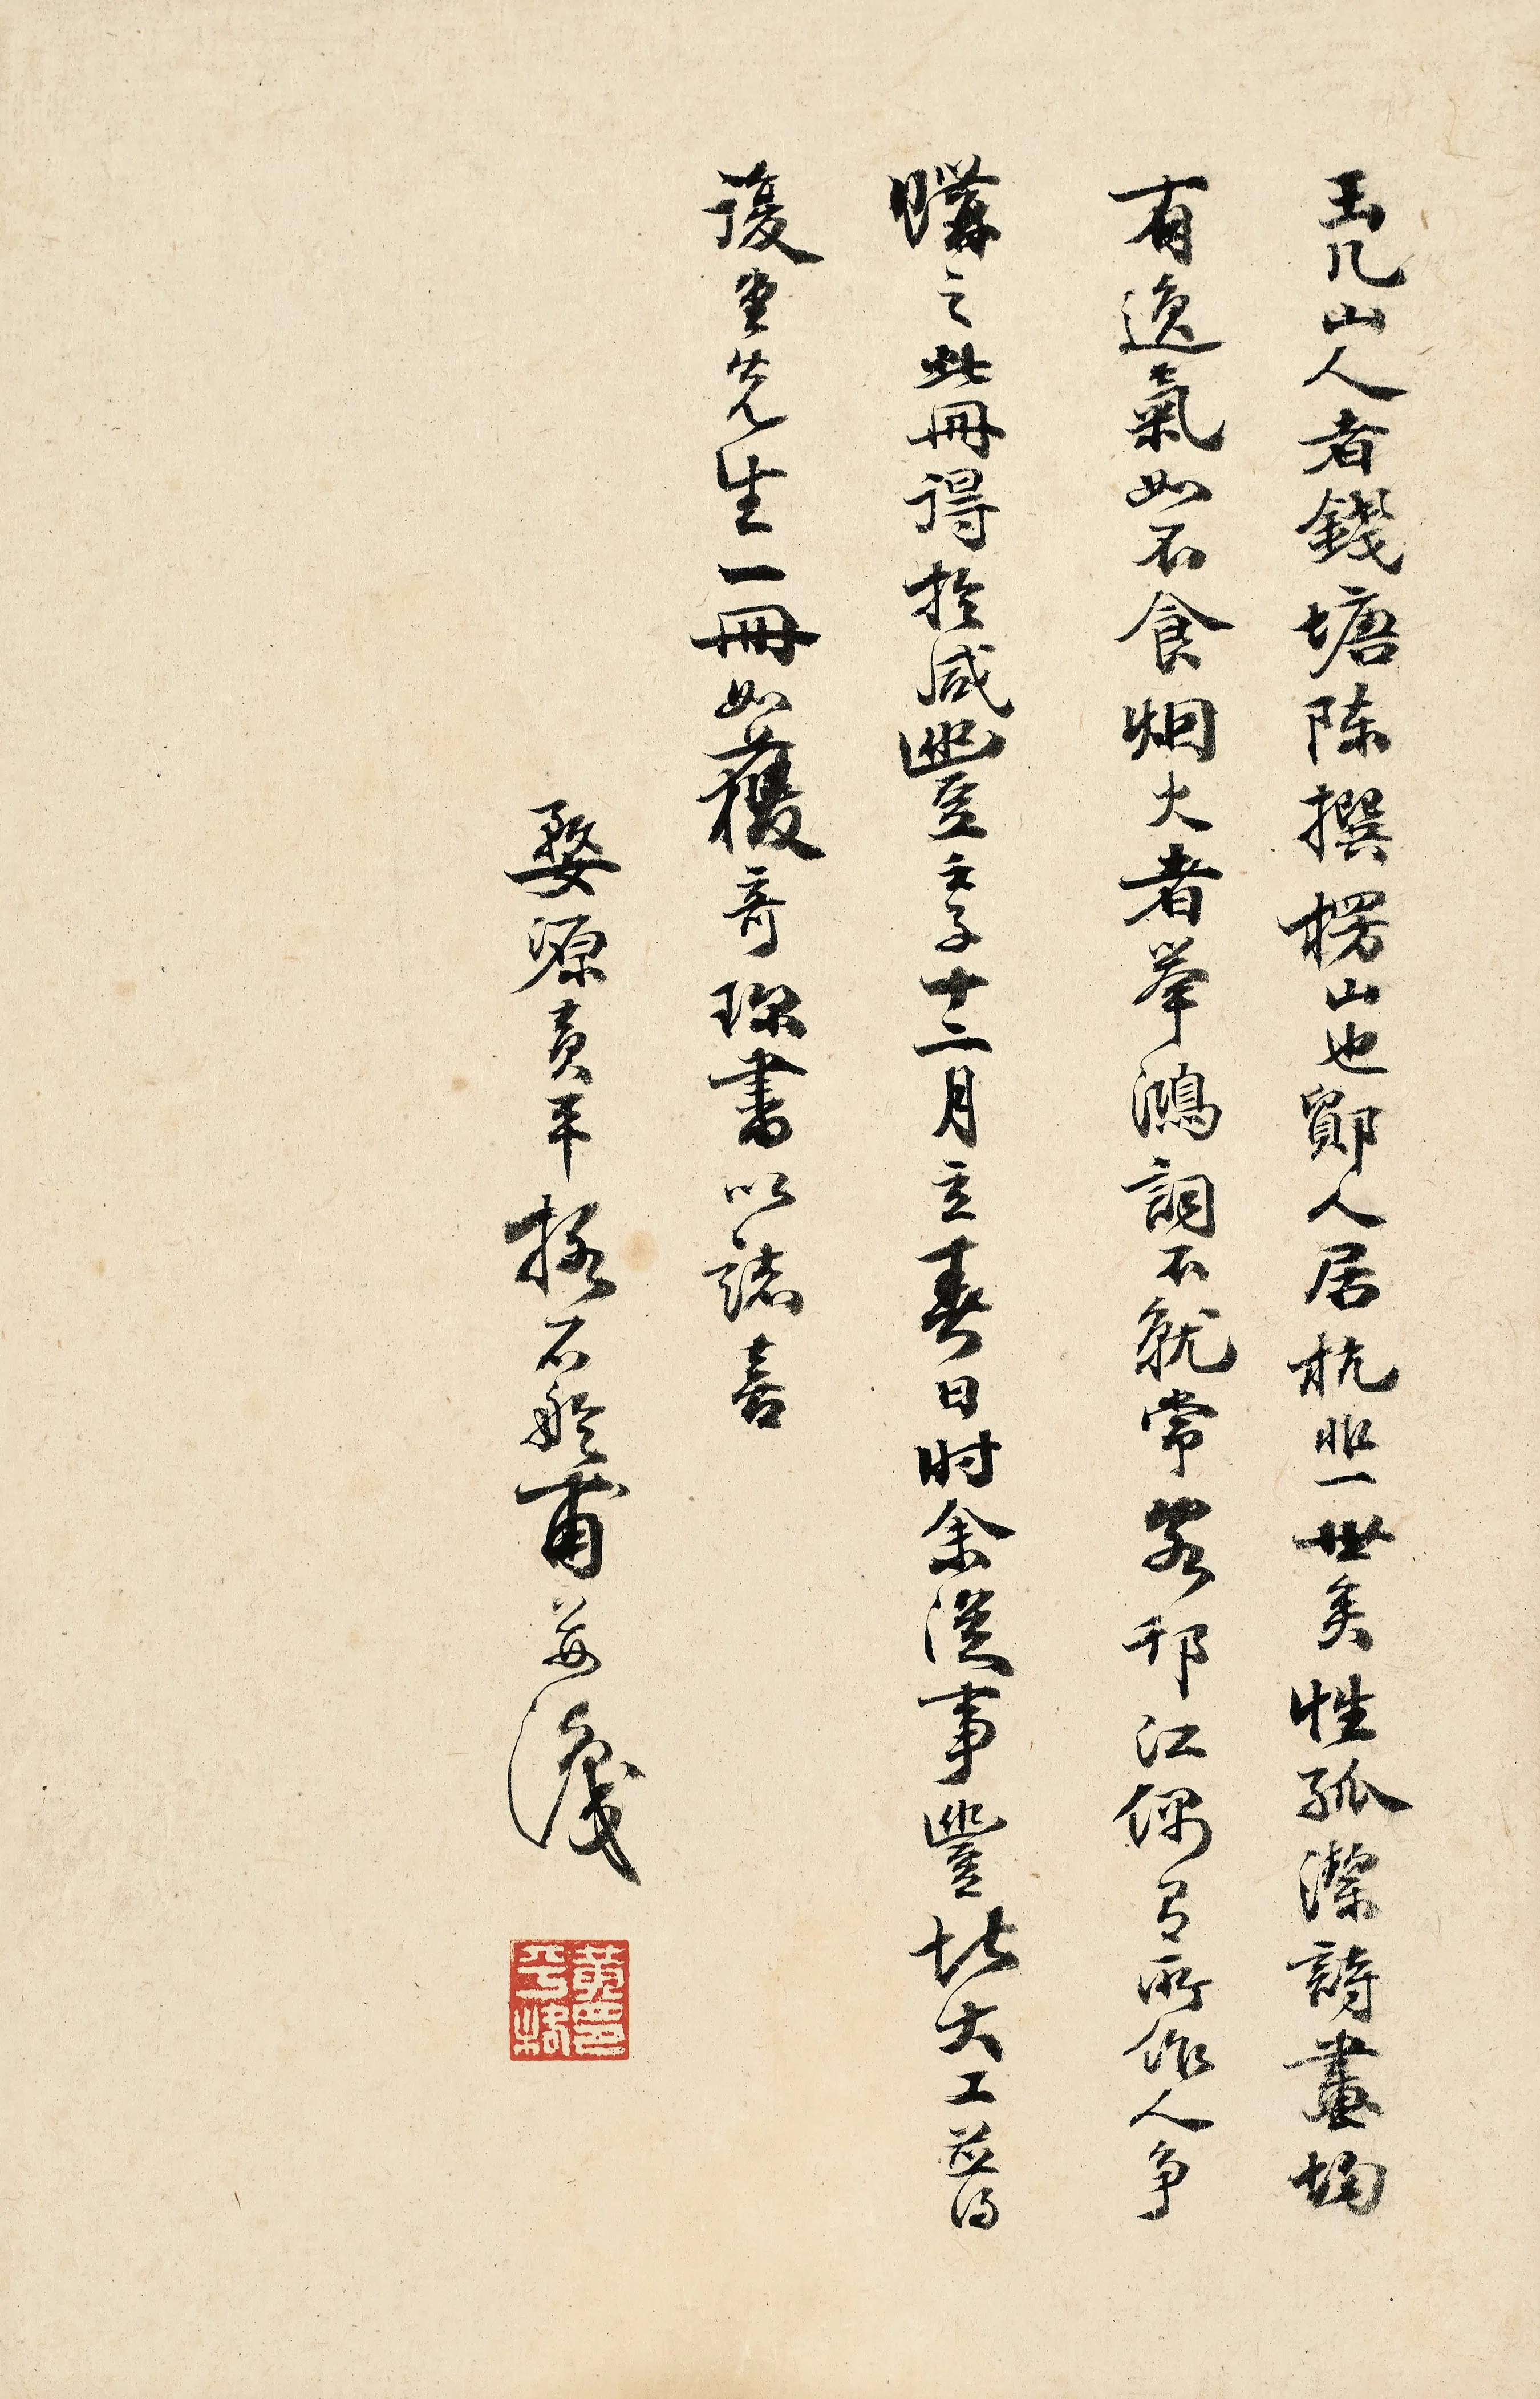 玉几山人者錢塘陳撰楞山也鄞人居杭非一世矣性孤潔詩畫均
有逸氣如不食烟火者舉鴻詞不就常客邗江偶有所作人爭
購之此冊得於咸豐壬子十二月立春日时余從事豐北大工并得
復堂先生一冊如獲奇珍書以誌喜
婺源黃平格石舲甫并識
黃印平格